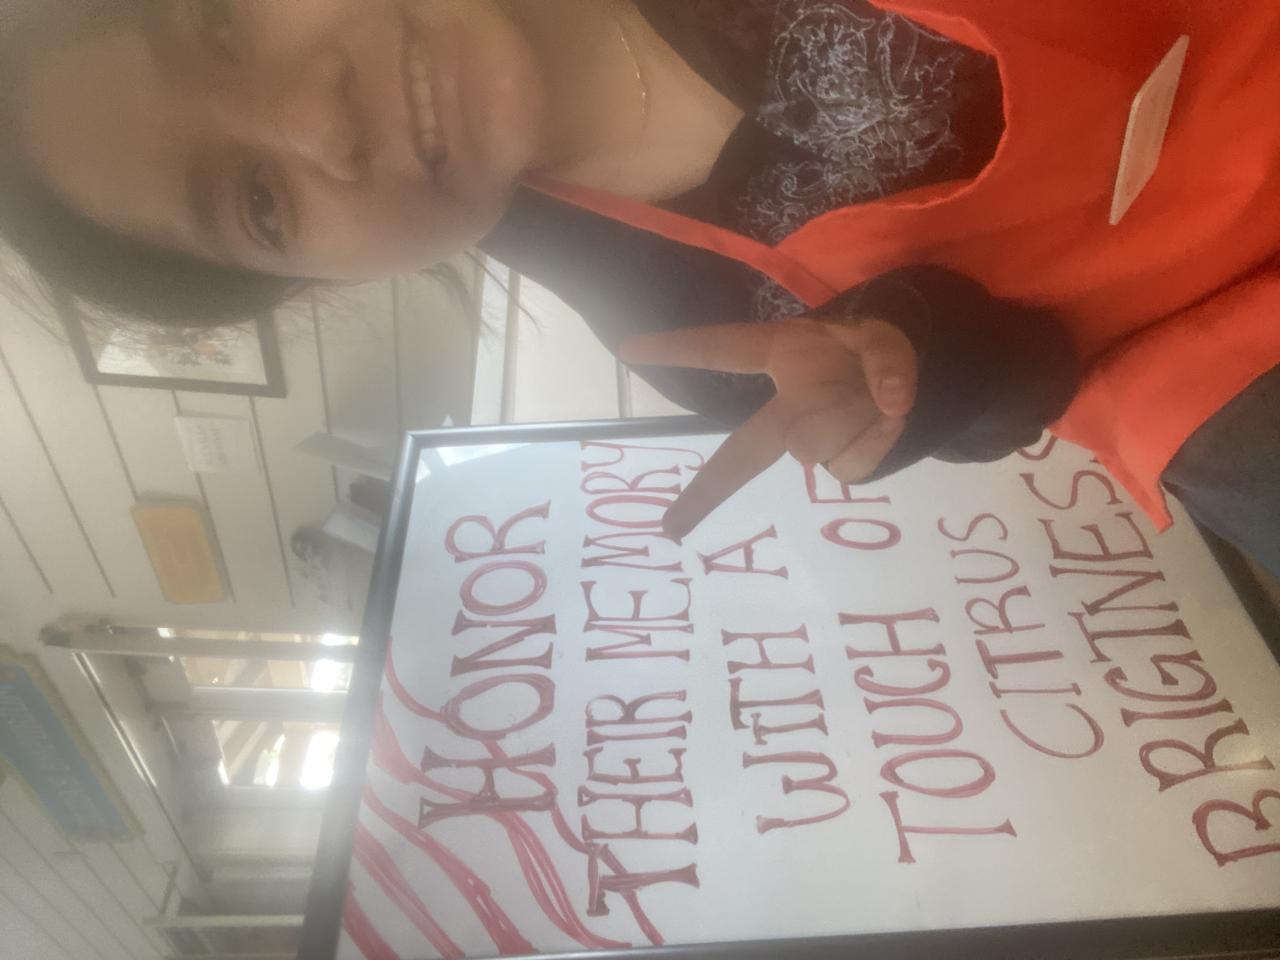 HONOR
THEIR MEMORY
WITH A
TOUCH OF
CITRUS
BRIGTNESS